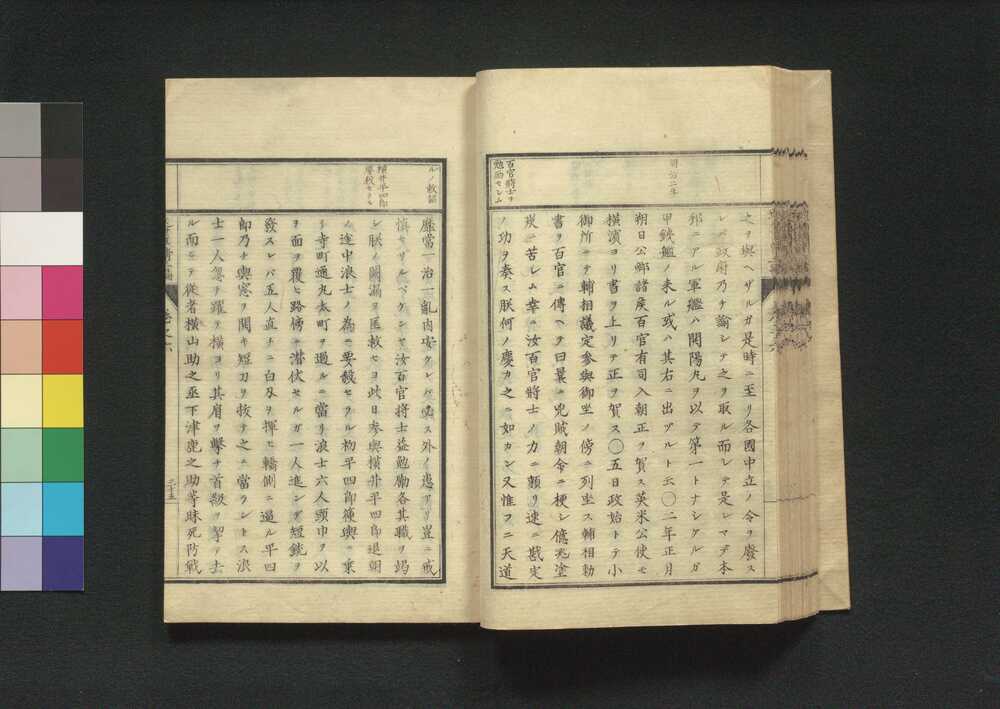 明治二年
之ヲ與ヘザルガ是時ニ至リ各國中立ノ令ヲ廢ス
レバ政府乃チ諭シテ之ヲ取ル而シテ是レマデ本
邦ニアル軍艦ハ開陽丸ヲ以テ第一トナシケルガ
甲鐵艦ノ来ル或ハ其右ニ出ヅルト云〇二年正月
朔日公卿諸侯百官有司入朝正ヲ賀ス英米公使モ
橫濱ヨリ書ヲ上リテ正ヲ賀ス〇五日政始トテ小
御所ニテ輔相議定参與御坐ノ傍ニ列坐ス輔相勅
書ヲ百官ニ傳ヘテ曰曩ニ兇賊朝命ニ梗シ億兆塗
炭ニ苦シム幸ニ汝百官將士ノ力ニ頼リ速ニ戡定
ノ功ヲ奏ス朕何ノ慶カ之ニ如カン又惟フニ天道
百官將士ヲ
勉勵セシム
ルノ敕語
横井平四郎
靡當一治一亂内安ケレバ必ス外ノ患アリ豈ニ戒
慎セザルベケンヤ汝百官將士益勉勵各其職ヲ竭
シ朕ノ闕漏ヲ匡救セヨ此日参與横井平四郎退朝
ノ途中浪士ノ為ニ要殺セラル初平四郎籃輿ニ乗
リ寺町通丸太町ヲ過ルニ當リ浪士六人頭巾ヲ以
テ面ヲ覆ヒ路傍ニ潜伏セルガ一人進ンデ短銃ヲ
發スレバ五人直チニ白刃ヲ揮ヒ轎側ニ逼ル平四
郎乃チ輿窓ヲ開キ短刀ヲ抜テ之ニ當ラントス浪
士一人忽チ躍テ横ヨリ其肩ヲ擊チ首級ヲ挈テ去
ル而シテ従者横山助之丞下津鹿之助等昧死防戦
二十五